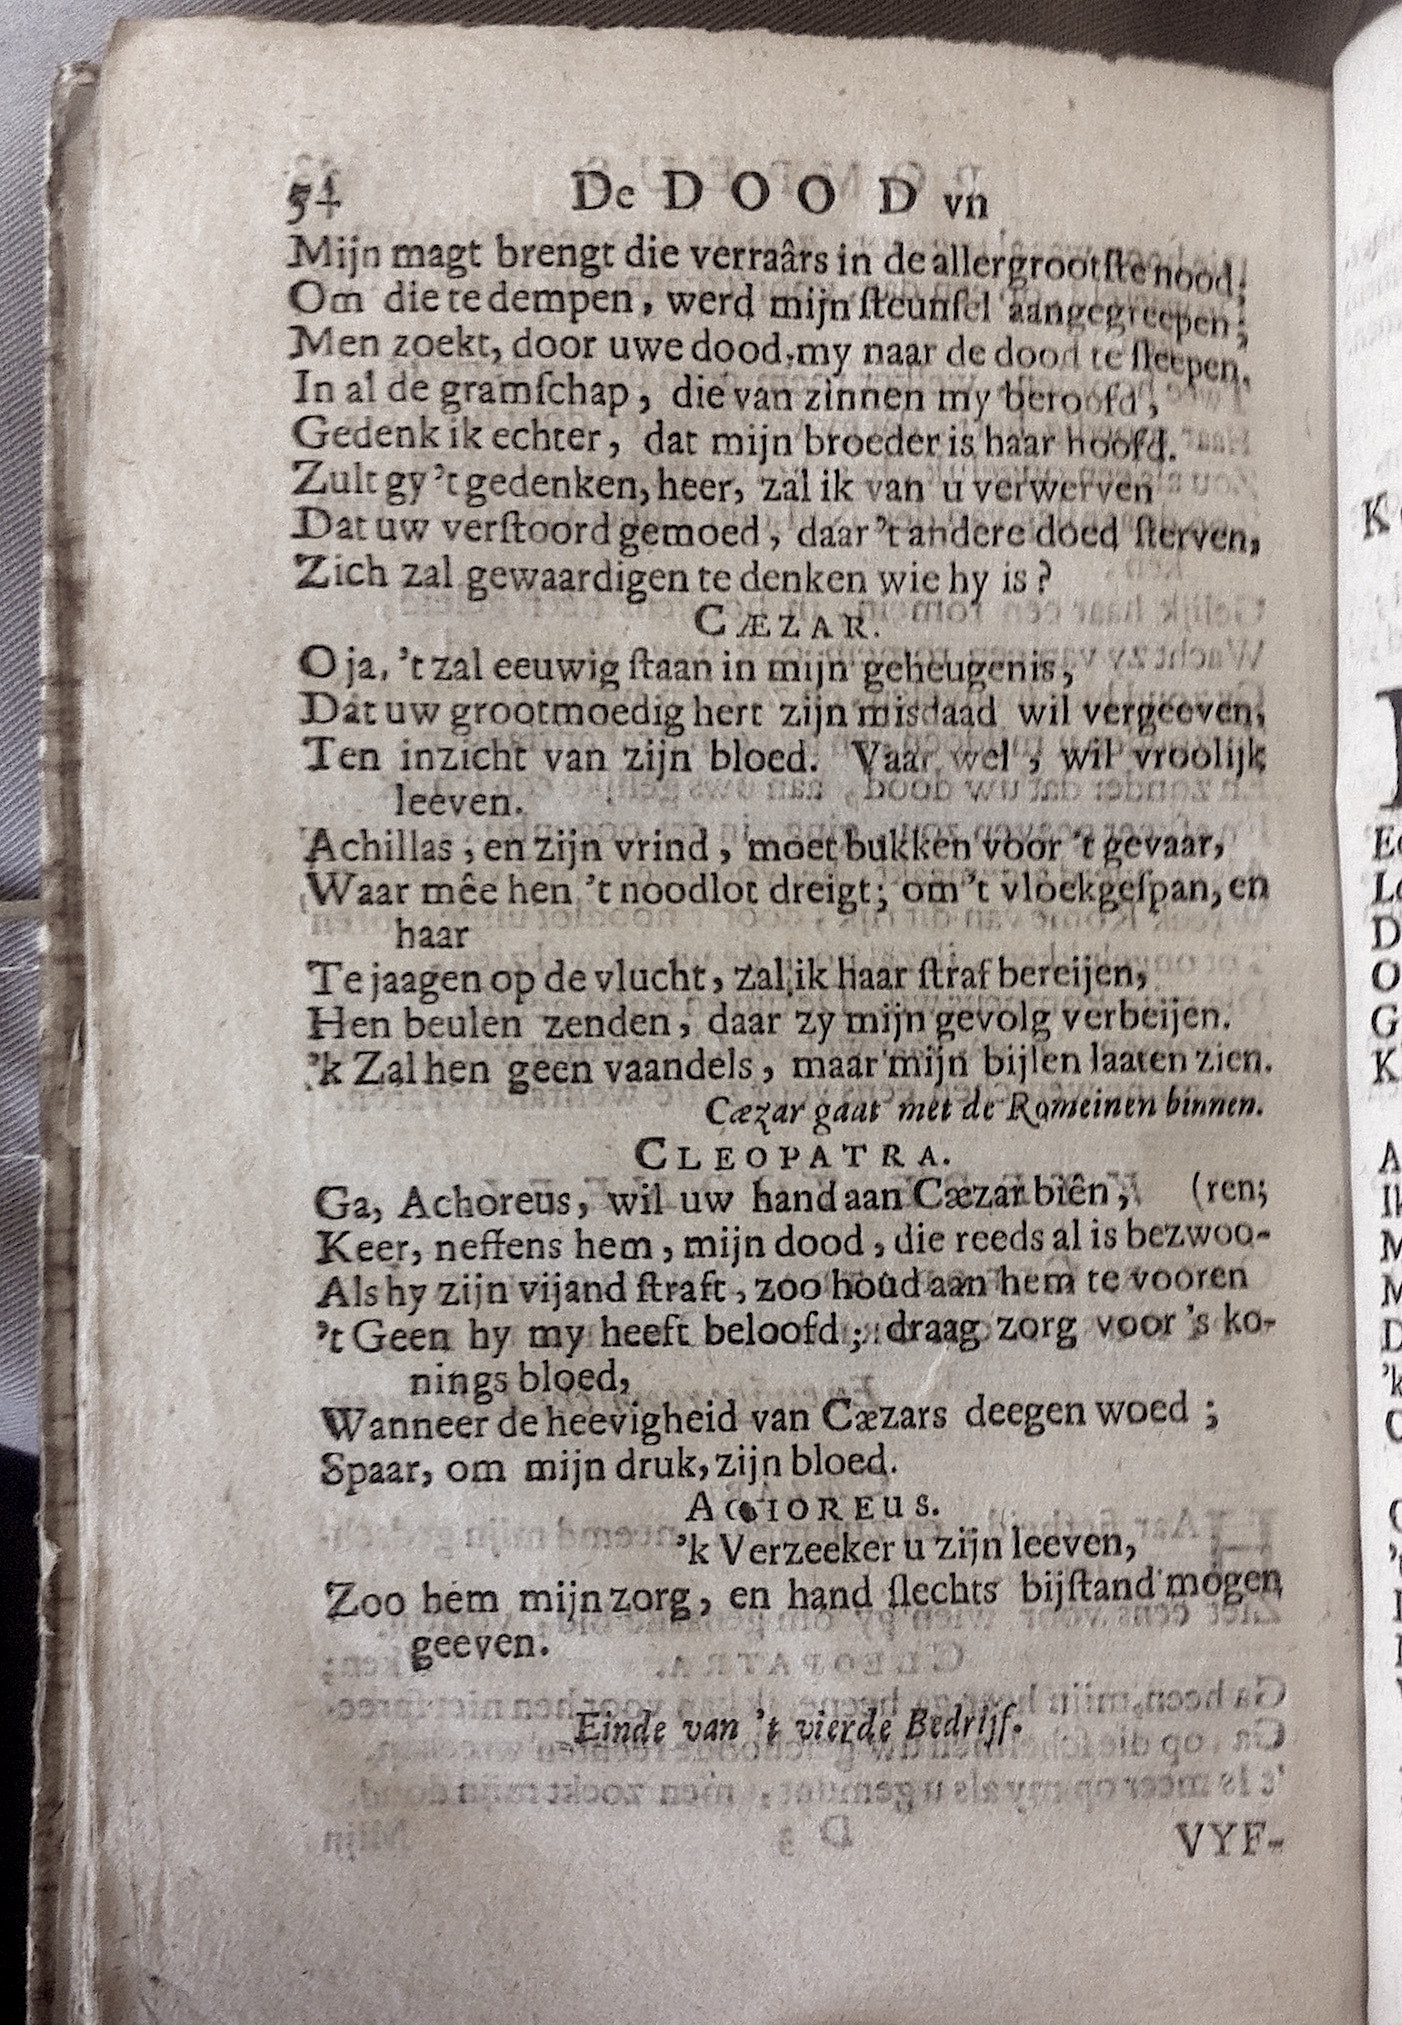 54 De DOOD vn
Mijn magt brengt die verraârs in de allergrootſte nood;
Om die te dempen, werd mijn ſteunſel aangegreepen;
Men zoekt, door uwe dood, my naar de dood te ſleepen.
In al de gramſchap, die van zinnen my beroofd,
Gedenk ik echter, dat mijn broeder is haar hoofd.
Zult gy 't gedenken, heer, zal ik van u verwerven
Dat uw verſtoord gemoed, daar 't andere doed ſterven,
Zich zal gewaardigen te denken wie hy is?
CÆZAR.
O ja, 't zal eeuwig ſtaan in mijn geheugenis,
Dat uw grootmoedig hert zijn misdaad wil vergeeven,
Ten inzicht van zijn bloed. Vaar wel, wil vroolijk
leeven.
Achillas, en zijn vrind, moet bukken voor 't gevaar,
Waar mêe hen 't noodlot dreigt; om 't vloekgeſpan, en
haar
Te jaagen op de vlucht, zal ik haar ſtraf bereijen,
Hen beulen zenden, daar zy mijn gevolg verbeijen.
'k Zal hen geen vaandels, maar mijn bijlen laaten zien.
Cæzar gaat met de Romeinen binnen.
CLEOPATRA.
Ga, Achoreus, wil uw hand aan Cæzar biên, (ren;
Keer, neffens hem, mijn dood, die reeds al is bezwoo-
Als hy zijn vijand ſtraft, zoo houd aan hem te vooren
't Geen hy my heeft beloofd; draag zorg voor 's ko-
nings bloed,
Wanneer de heevigheid van Cæzars deegen woed;
Spaar, om mijn druk, zijn bloed.
ACHOREUS.
'k Verzeeker u zijn leeven,
Zoo hem mijn zorg, en hand ſlechts bijſtand mogen
geeven.
Einde van 't vierde Bedrijf.
VYF-